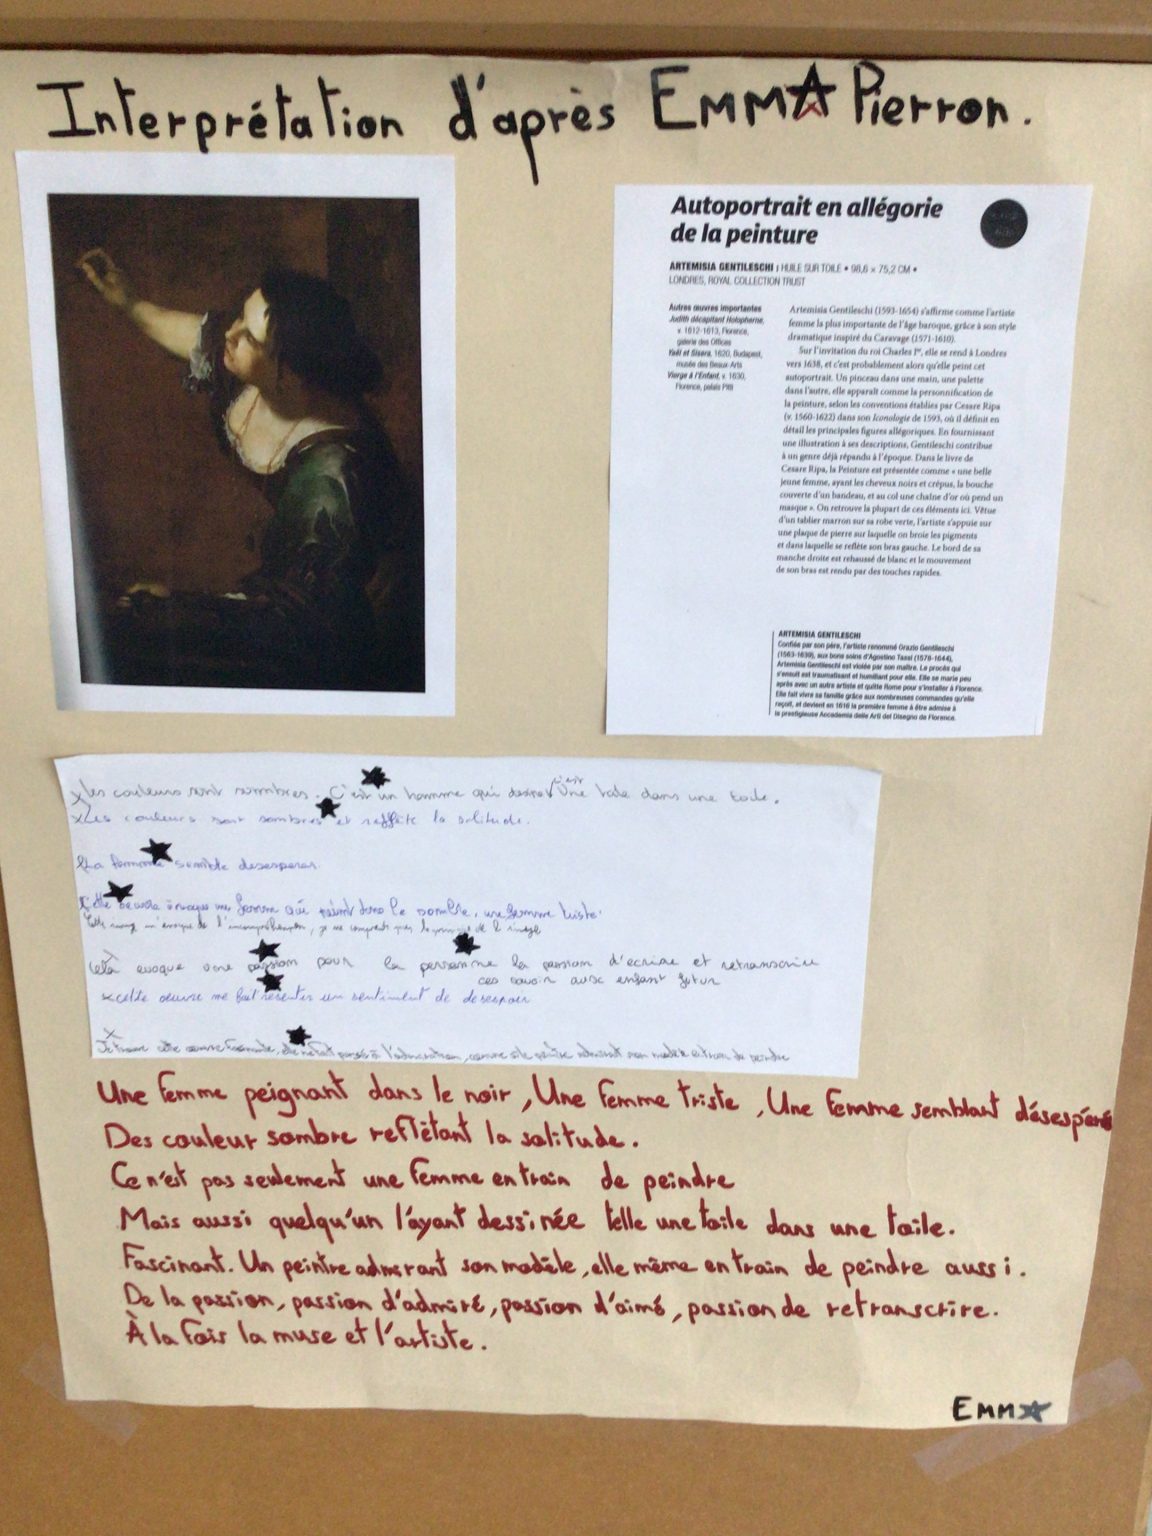 Interprétation d'après EMMA Pierron.
Autoportrait en allégorie
de la peinture
ARTEMISIA GENTILESCHI | HUILE SUR TOILE • 98,6 × 75,2 CM •
LONDRES, ROYAL COLLECTION TRUST
Autres œuvres importantes
Judith décapitant Holopherne,
v. 1612-1613, Florence,
galerie des Offices
Yaël et Sisera, 1620, Budapest,
musée des Beaux-Arts
Vierge à l'Enfant, v. 1630,
Florence, palais Pitti
Artemisia Gentileschi (1593-1654) s'affirme comme l'artiste
femme la plus importante de l'âge baroque, grâce à son style
dramatique inspiré du Caravage (1571-1610).
Sur l'invitation du roi Charles Ier, elle se rend à Londres
vers 1638, et c'est probablement alors qu'elle peint cet
autoportrait. Un pinceau dans une main, une palette
dans l'autre, elle apparaît comme la personnification de
la peinture, selon les conventions établies par Cesare Ripa
(v. 1560-1622) dans son Iconologie de 1593, où il définit en
détail les principales figures allégoriques. En fournissant
une illustration à ses descriptions, Gentileschi contribue
à un genre déjà répandu à l'époque. Dans le livre de
Cesare Ripa, la Peinture est présentée comme « une belle
jeune femme, ayant les cheveux noirs et crépus, la bouche
couverte d'un bandeau, et au col une chaîne d'or où pend un
masque ». On retrouve la plupart de ces éléments ici. Vêtue
d'un tablier marron sur sa robe verte, l'artiste s'appuie sur
une plaque de pierre sur laquelle on broie les pigments
et dans laquelle se reflète son bras gauche. Le bord de sa
manche droite est rehaussé de blanc et le mouvement
de son bras est rendu par des touches rapides.
ARTEMISIA GENTILESCHI
Confiée par son père, l'artiste renommé Orazio Gentileschi
(1563-1639), aux bons soins d'Agostino Tassi (1578-1644),
Artemisia Gentileschi est violée par son maître. Le procès qui
s'ensuit est traumatisant et humiliant pour elle. Elle se marie peu
après avec un autre artiste et quitte Rome pour s'installer à Florence.
Elle fait vivre sa famille grâce aux nombreuses commandes qu'elle
reçoit, et devient en 1616 la première femme à être admise à
la prestigieuse Accademia delle Arti del Disegno de Florence.
Les couleurs sont sombres. C'est un homme qui c'est une toile dans une toile.
Les couleurs sont sombres et reflète la solitude.
La femme semble desesperer.
Cette oeuvre une femme qui peint dans le sombre, une femme triste.
l'incompréhension, je ne comprends pas de l'image
Cela evoque une passion pour la personne la passion d'ecrire et retranscrire
ces savoir aux enfant futur
cette oeuvre me fait resentir un sentiment de desespoir
Je trouve cette oeuvre l'admiration, comme si le peintre admirait son modèle en train de peindre
Une femme peignant dans le noir, Une femme triste, Une femme semblant désespéré
Des couleur sombre reflêtant la solitude.
Ce n'est pas seulement une femme en train de peindre
Mais aussi quelqu'un l'ayant dessinée telle une toile dans une toile.
Fascinant. Un peintre admirant son modèle, elle même en train de peindre aussi.
De la passion, passion d'admiré, passion d'aimé, passion de retranscrire.
À la fois la muse et l'artiste.
EMMA